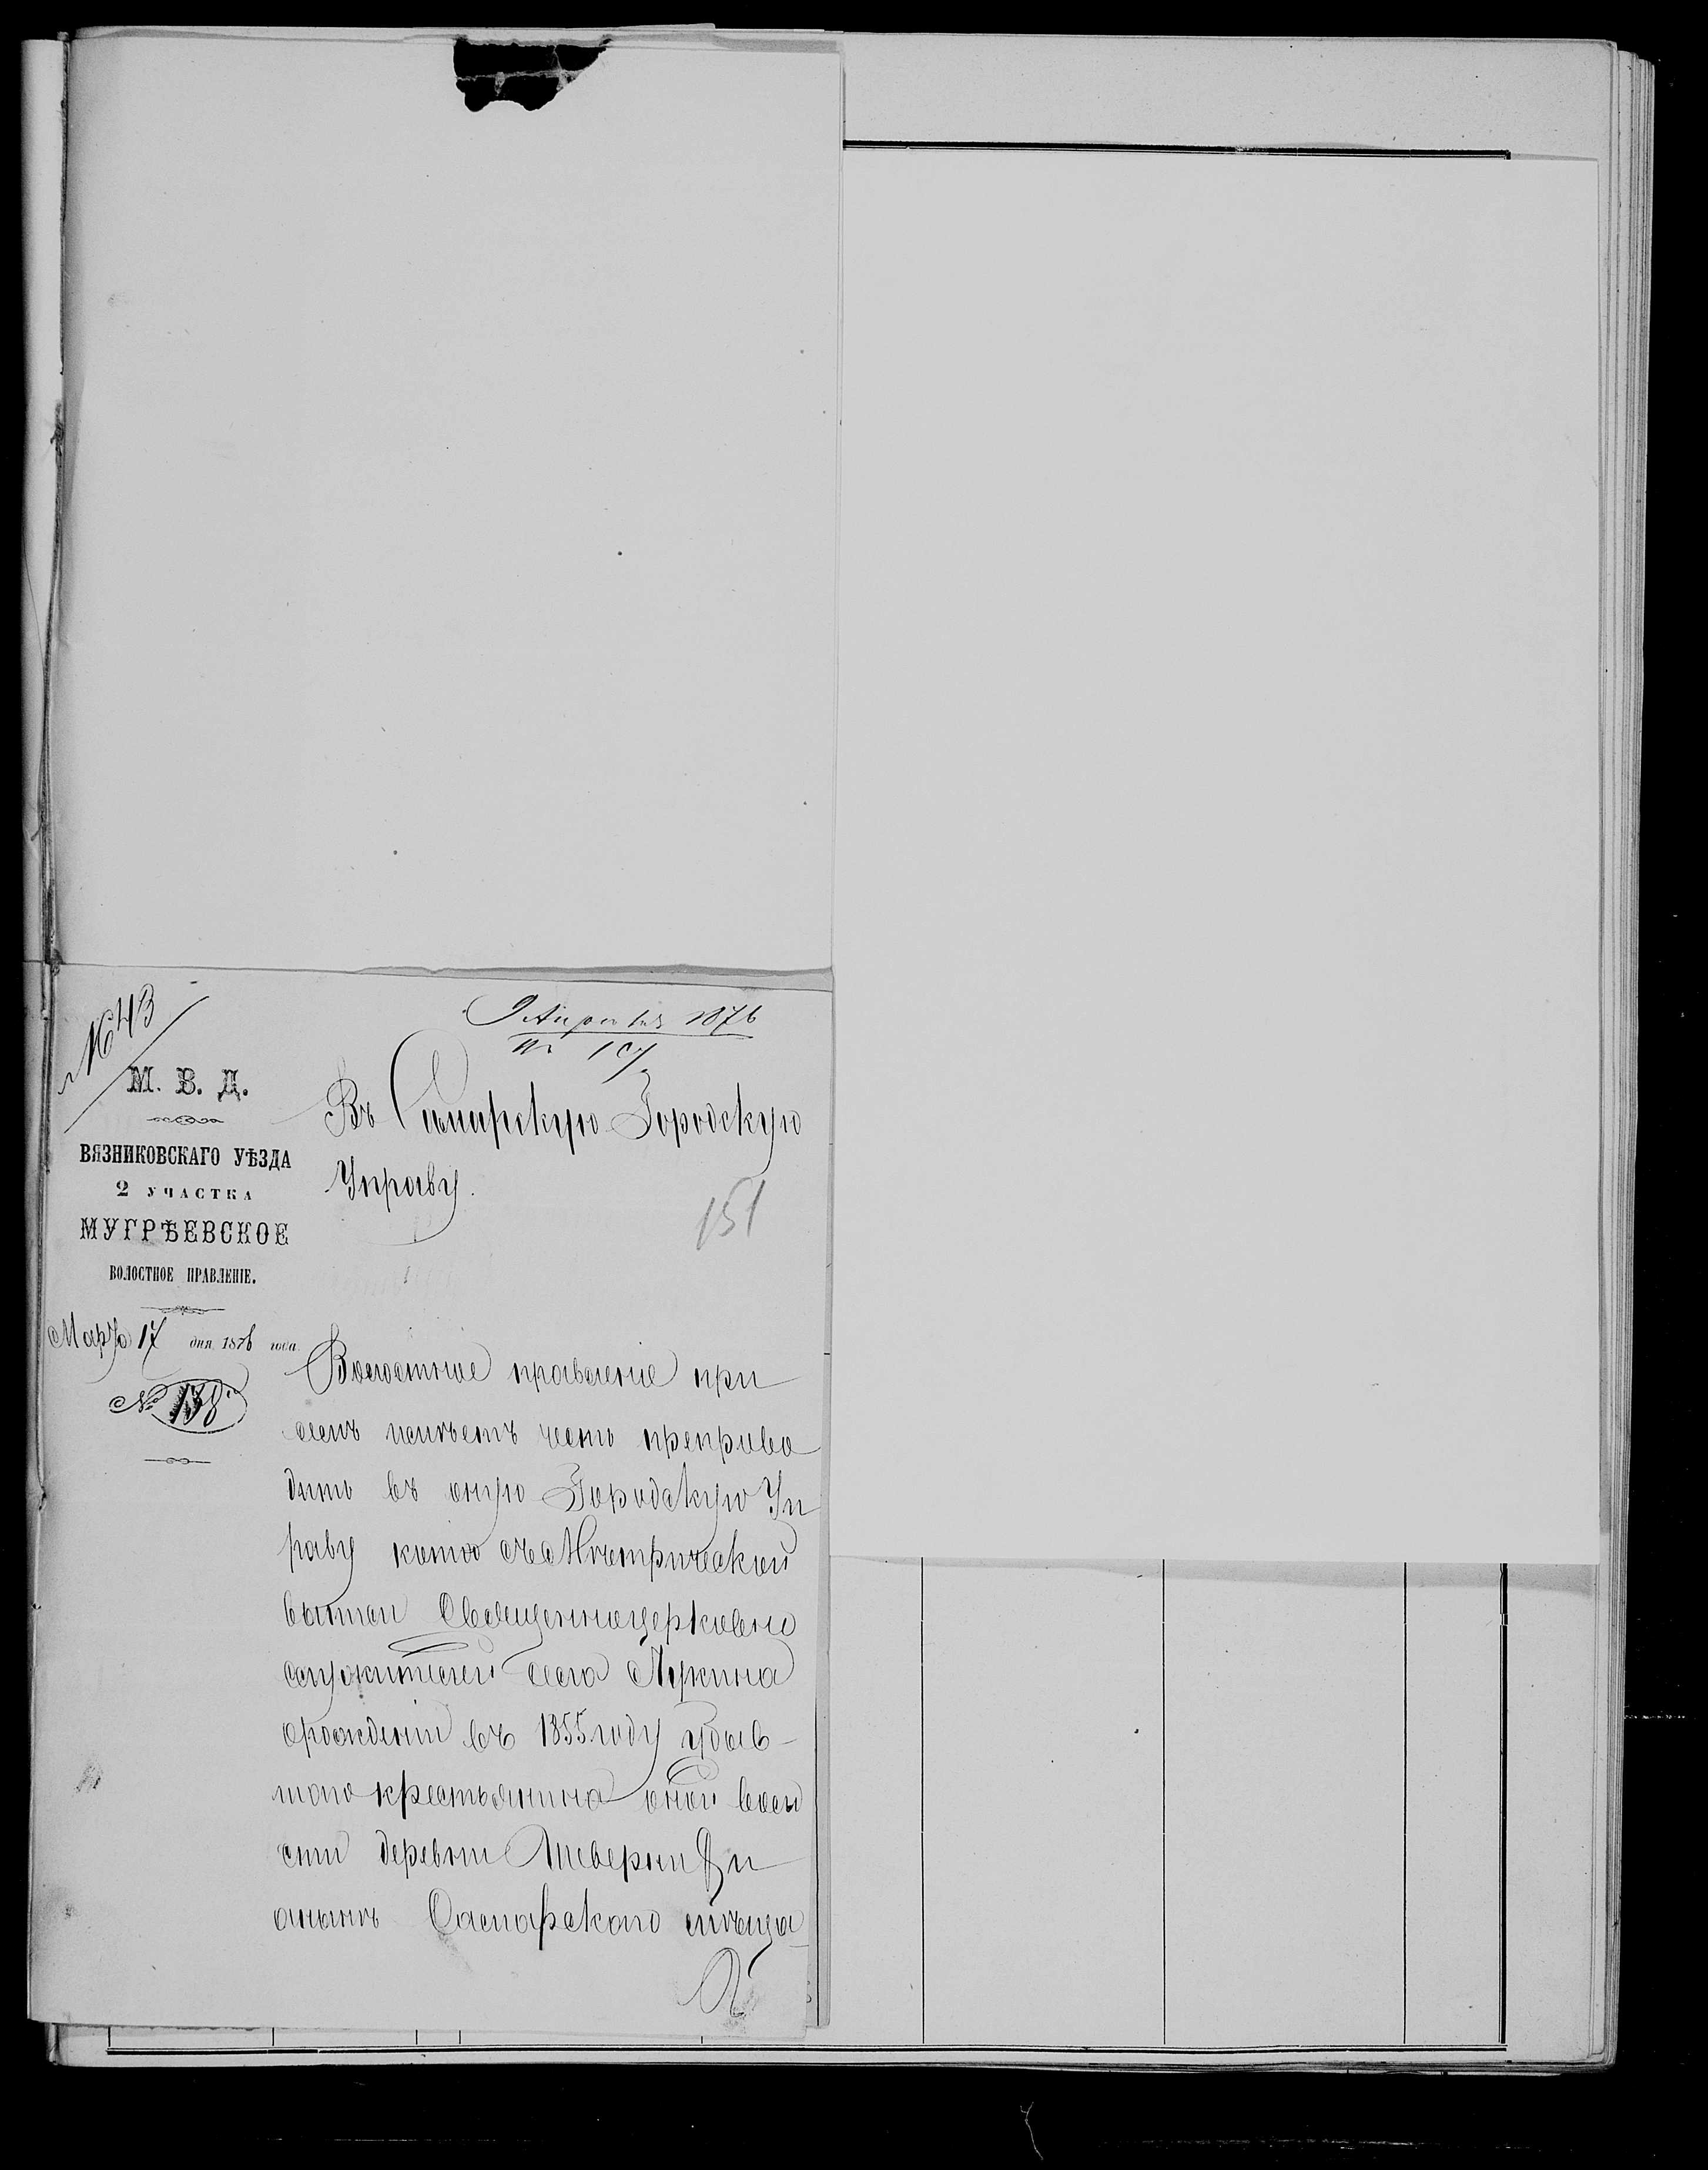 № 43
9 Апреля 1876
№ 107
М. В. Д.
ВЯЗНИКОВСКАГО УѢЗДА
2 УЧАСТКА
МУГРѢЕВСКОЕ
ВОЛОСТНОЕ ПРАВЛЕНІЕ.
Марта 17 дня 1876 года
№ 138
Въ Самарскую Городскую
Управу.
151
Волостное правленіе при
семъ имѣетъ честь препрово
дить въ оную Городскую Уп
раву копію съ Метрической
выписи Священноцерковно
служителей села Лукина
о рожденіи въ 1855 году
шаго крестьянина оной воло
сти деревни
Самарскаго мѣща